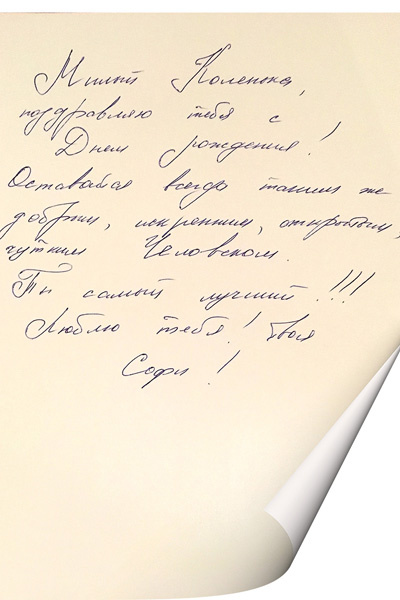 Милый Коленька,
поздравляю тебя с
Днем рождения!
Оставайся всегда таким же
добрым, искренним, открытым,
чутким Человеком.
Ты самый лучший!!!
Люблю тебя! Твоя
Софи!